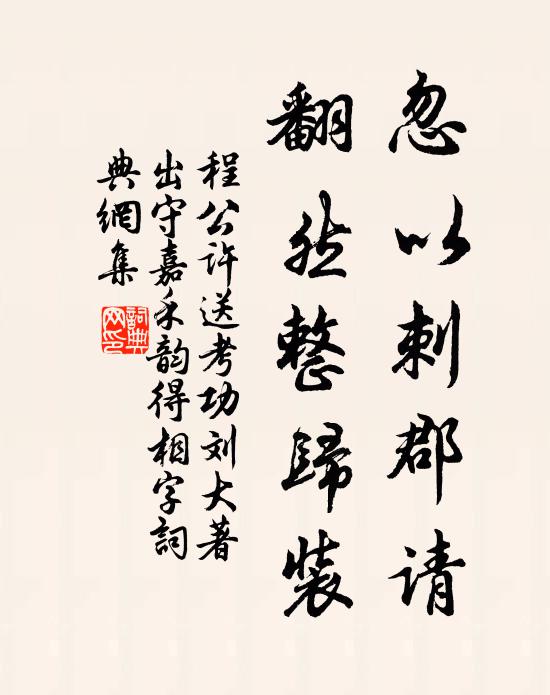 忽以刺郡请
翻然整歸裝
程公许送考功刘大著
出守嘉禾韵得相字詞
典網集
詞典网印